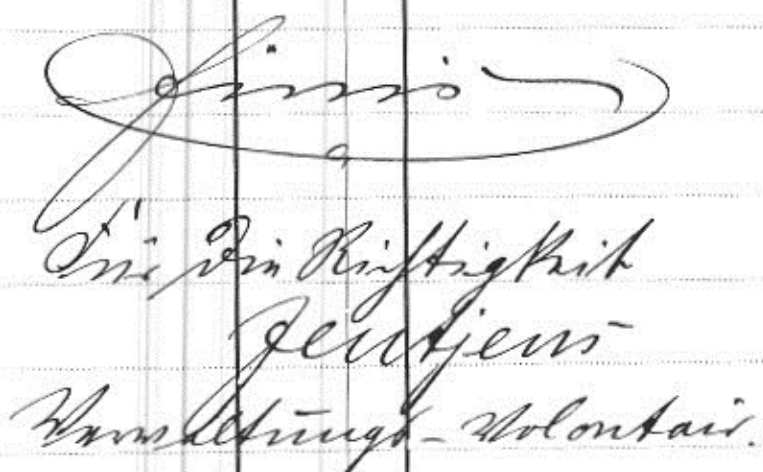 Finis
Für die Richtigkeit
Jentjens
Verwaltungs-Volontair.